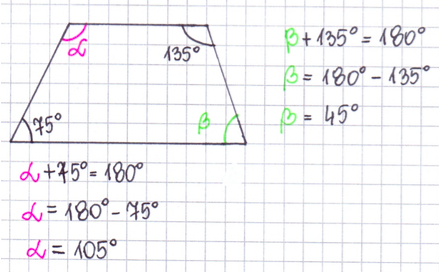 α
135°
75°
β
β + 135° = 180°
β = 180° - 135°
β = 45°
α + 75° = 180°
α = 180° - 75°
α = 105°